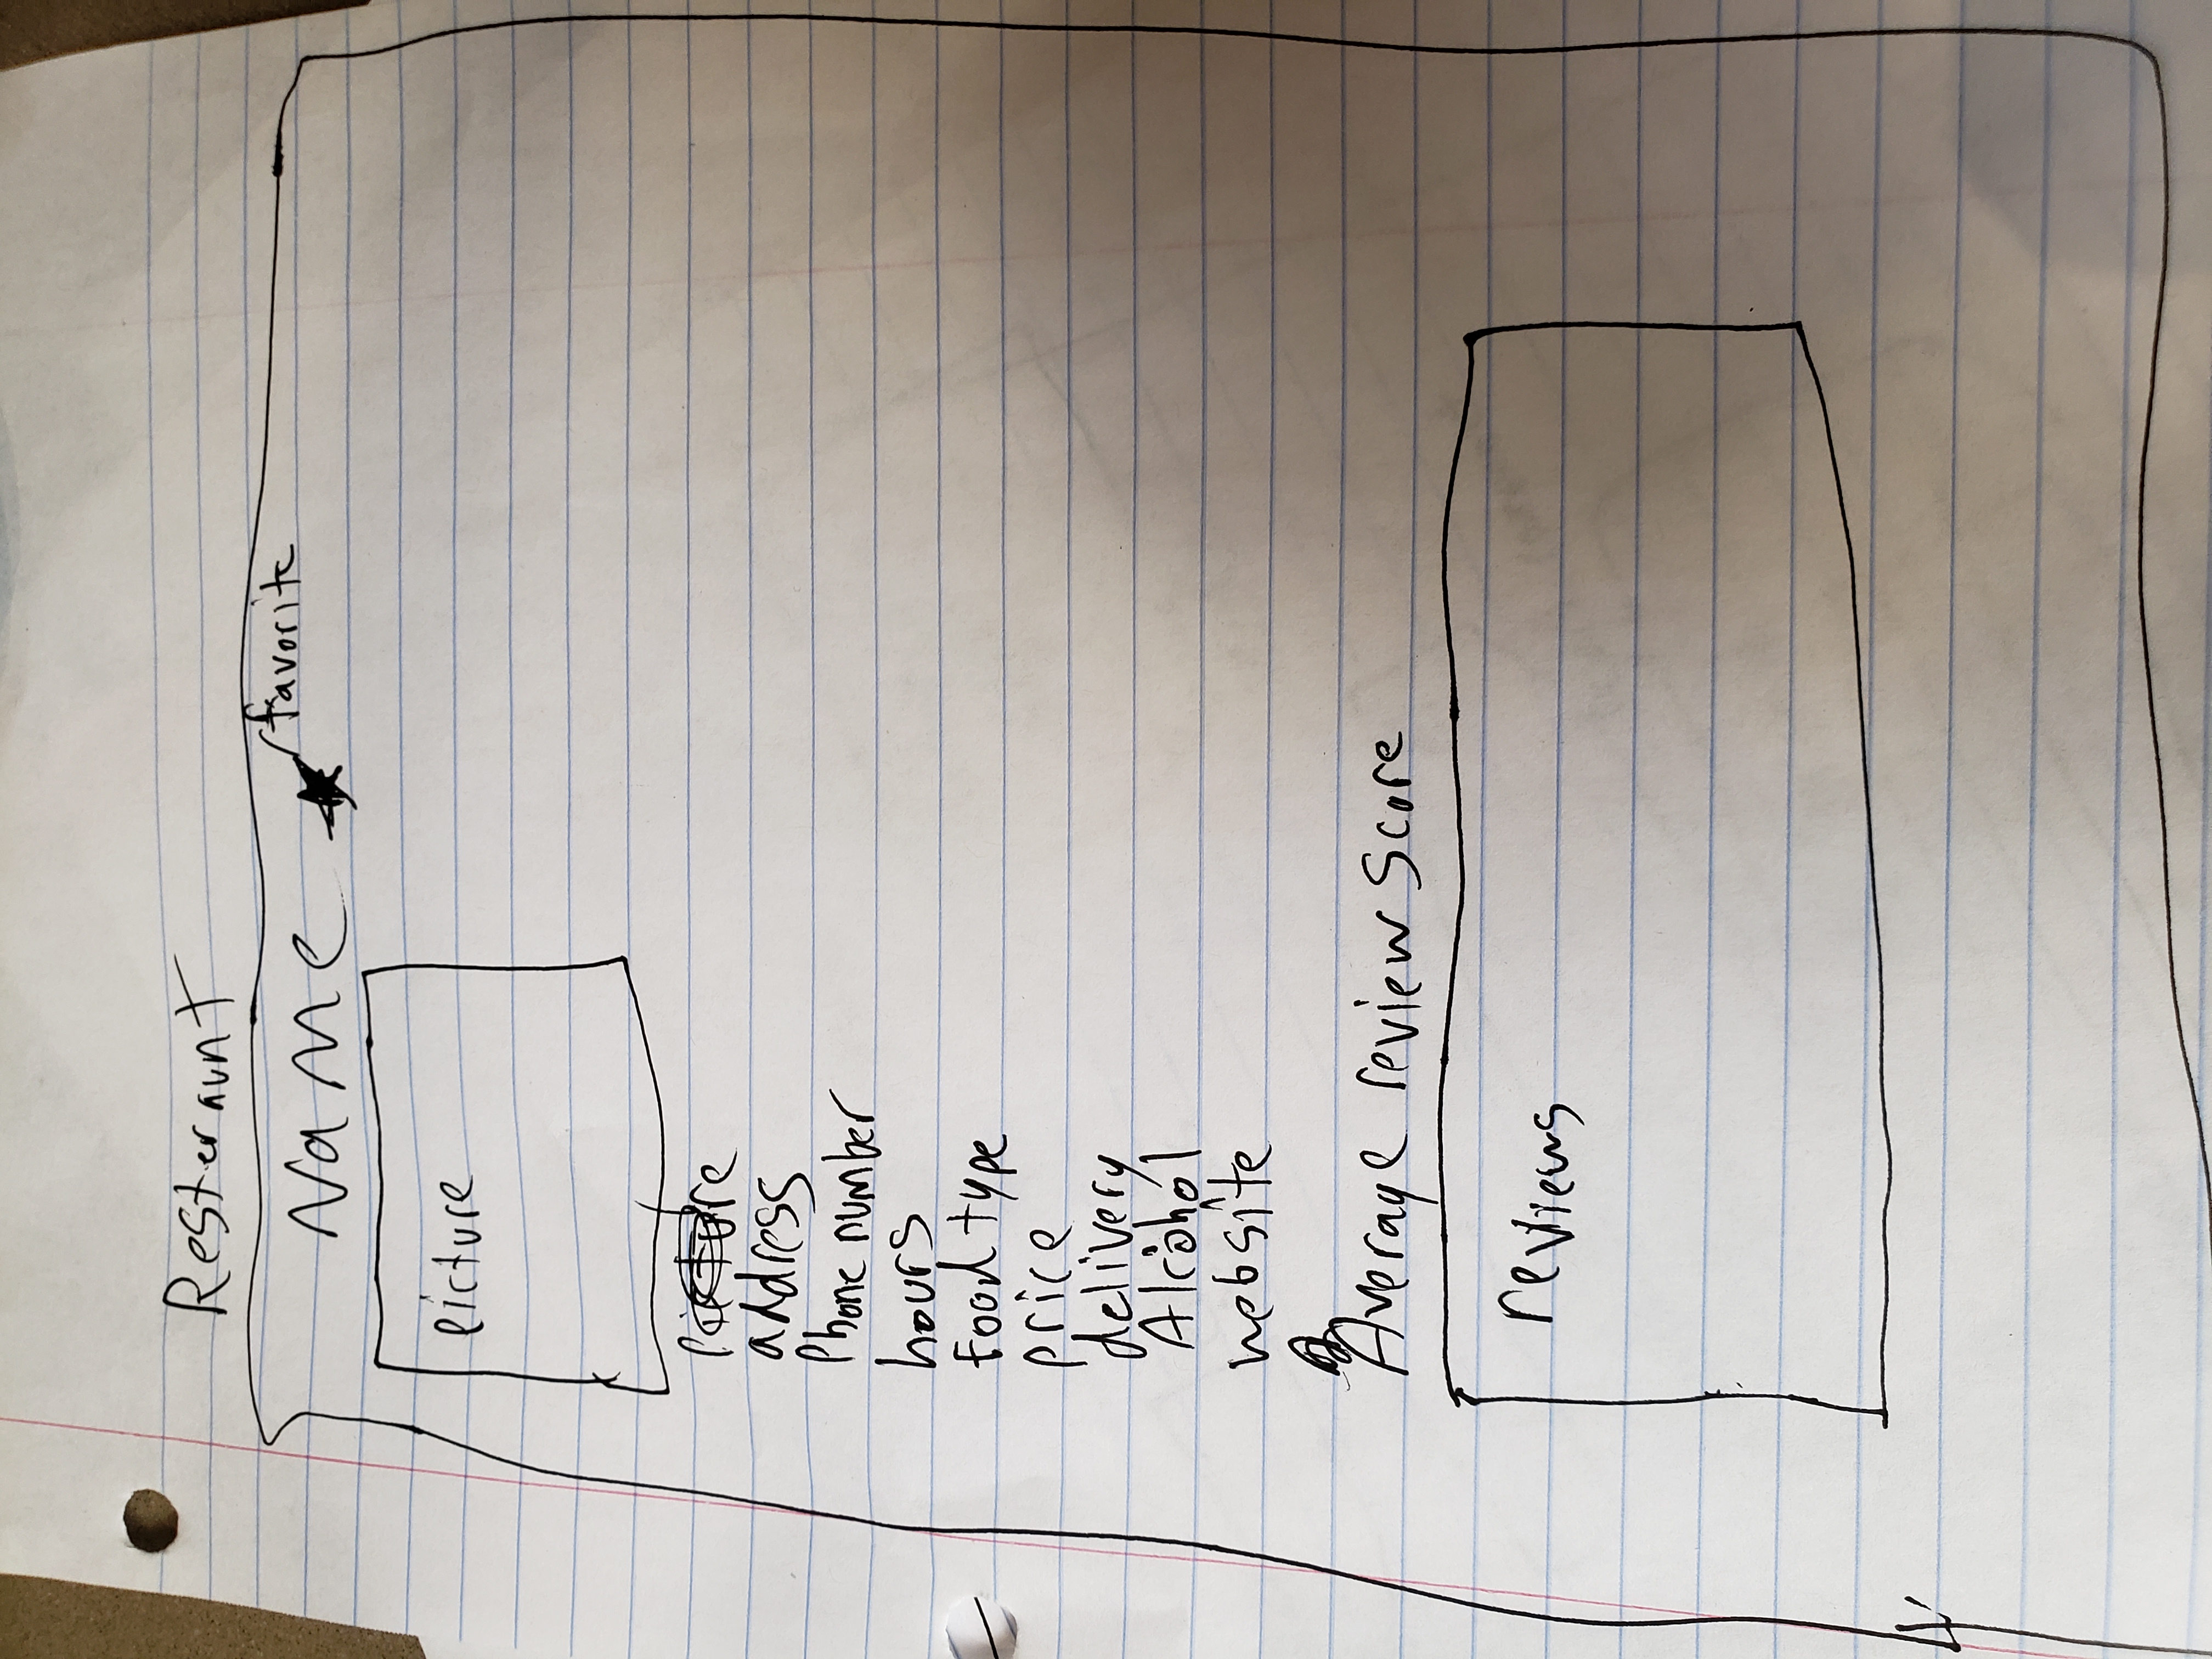 Resteraunt
Name favorite
picture
picture
address
Phone number
hours
Food type
price
delivery
Alcohol
website
Average review score
reviews